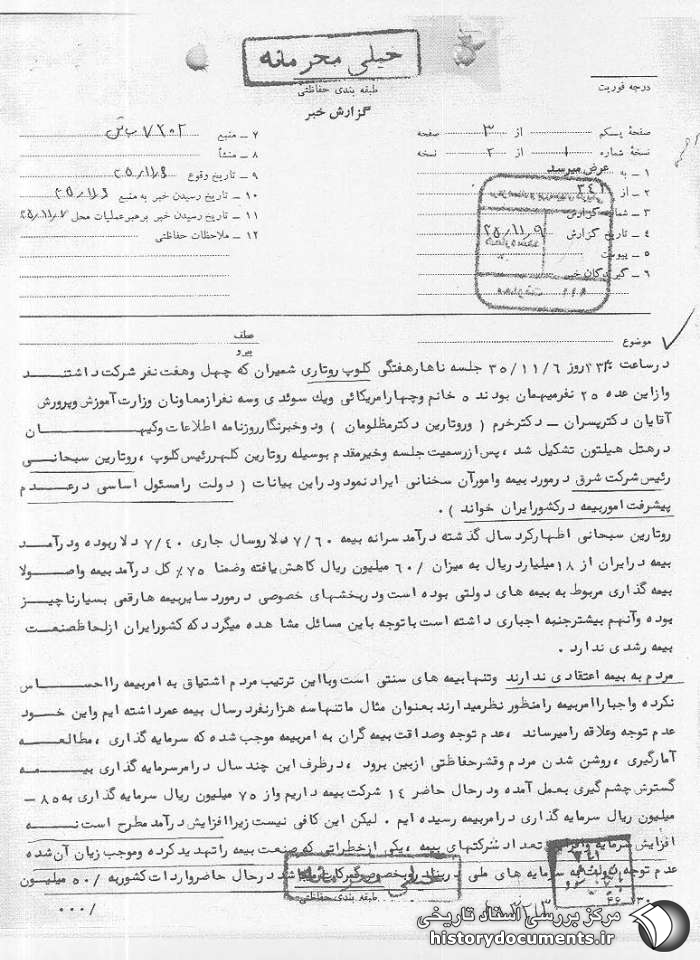 خیلی محرمانه
طبقه بندی حفاظتی
گزارش خبر
درجه فوریت
صفحه یکم از ۳ صفحه
نسخه شماره ۱ از ۲ نسخه
۱ – به عرض میرسد
۲ – از ۳۴۱
۳ – شماره گزارش
۴ – تاریخ گزارش ۲۵/۱۱/۹
۵ – پیوست
۶ – گیرندگان خبر
۷ – منبع ۷۲۰۲
۸ – منشأ
۹ – تاریخ وقوع ۲۵/۱۱/۶
۱۰ – تاریخ رسیدن خبر به منبع ۲۵/۱۱/۶
۱۱ – تاریخ رسیدن خبر برهبر عملیات محل ۲۵/۱۱/۷
۱۲ – ملاحظات حفاظتی
موضوع
عطف
پیرو
درساعت روز ۳۵/۱۱/۶ جلسه ناهارهفتگی کلوپ روتاری شمیران که چهل وهفت نفر شرکت داشتند
وازاین عده ۲۵ نفرمیهمان بودند ۵ خانم وچهارامریکائی ویك سوئدی وسه نفرازمعاونان وزارت آموزش وپرورش
آقایان دکترپسران – دکترخرم ( وروتارین دکترمظلومان ) ودوخبرنگارروزنامه اطلاعات وکیهان
درهتل هیلتون تشکیل شد ، پس ازرسمیت جلسه وخیرمقدم بوسیله روتارین کلهررئیس کلوپ ، روتارین سبحانی
رئیس شرکت شرق درمورد بیمه وامورآن سخنانی ایراد نمود ودراین بیانات ( دولت رامسئول اساسی درعدم
پیشرفت اموربیمه درکشورایران خواند ) .
روتارین سبحانی اظهارکرد سال گذشته درآمد سرانه بیمه ۷/۶۰ دلاروسال جاری ۷/۴۰ دلاربوده ودرآمد
بیمه درایران از ۱۸میلیارد ریال به میزان /۶۰ میلیون ریال کاهش یافته وضمنا ۷۵٪ کل درآمد بیمه واصولا
بیمه گذاری مربوط به بیمه های دولتی بوده است ودربخشهای خصوصی درمورد سایربیمه هارقمی بسیارناچیز
بوده وآنهم بیشترجنبه اجباری داشته است با توجه باین مسائل مشاهده میگردد که کشورایران ازلحاظ صنعت
بیمه رشدی ندارد .
مردم به بیمه اعتقادی ندارند وتنهابیمه های سنتی است وبااین ترتیب مردم اشتیاق به امربیمه رااحساس
نکرده واجباراامربیمه رامنظور نظرمیدارند بعنوان مثال ماتنهاسه هزارنفردرسال بیمه عمرداشته ایم واین خود
عدم توجه وعلاقه رامیرساند ، عدم توجه وصداقت بیمه گران به امربیمه موجب شده که سرمایه گذاری ، مطالعه
آمارگیری ، روشن شدن مردم وقشرحفاظتی ازبین برود ، درظرف این چند سال درامرسرمایه گذاری بیمه
گسترش چشم گیری بعمل آمده ودرحال حاضر ۱۴ شرکت بیمه داریم واز ۷۵ میلیون ریال سرمایه گذاری به ۸۵۰
میلیون ریال سرمایه گذاری درامربیمه رسیده ایم . لیکن این کافی نیست زیراافزایش درآمد مطرح است نه
افزایش سرمایه وافزایش تعداد شرکتهای بیمه ، یکی ازخطراتی که صنعت بیمه راتهدید کرده وموجب زیان آن شده
عدم توجه دولت به سرمایه های ملی دربنادر وبخصوص گمرکات میباشد درحال حاضرواردات کشوربه /۵۰ میلیون
/۰۰۰
خیلی محرمانه
طبقه بندی حفاظتی
مرکز بررسی اسناد تاریخی
historydocuments.ir